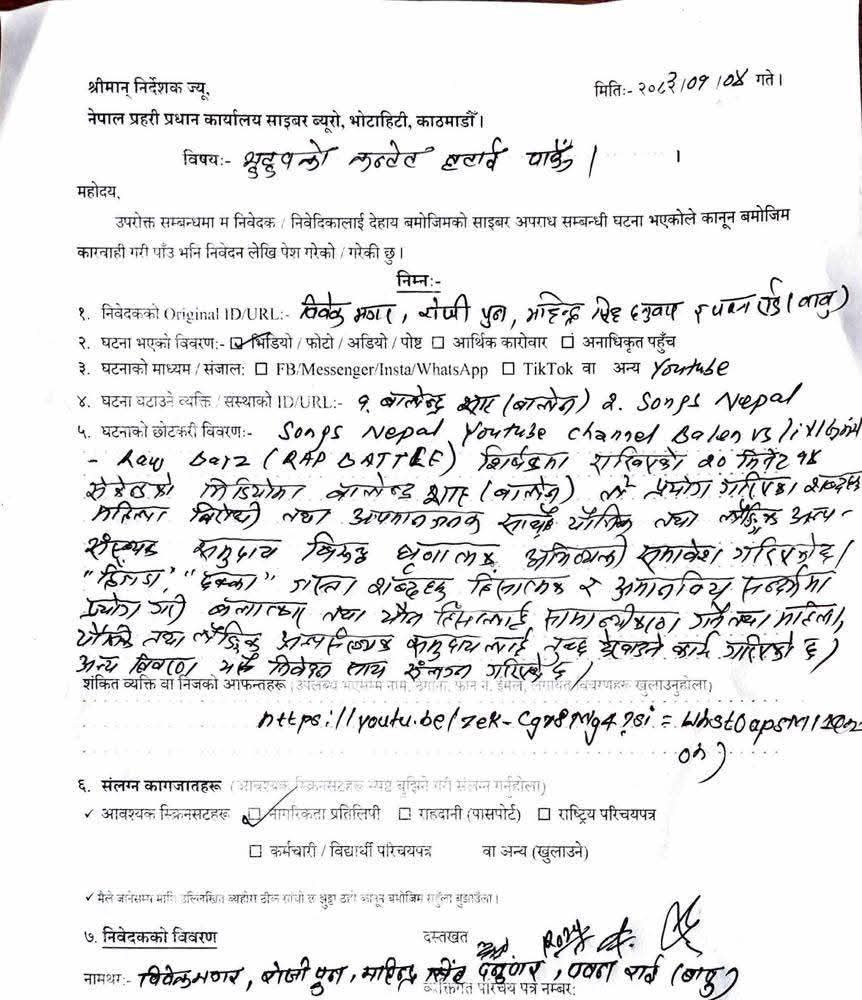 श्रीमान् निर्देशक ज्यू,
मितिः- २०८३।०१।०४ गते।
नेपाल प्रहरी प्रधान कार्यालय साइबर ब्यूरो, भोटाहिटी, काठमाडौँ।
विषयः- कन्टेन्ट हटाई पाऊँ। ।
महोदय,
उपरोक्त सम्बन्धमा म निवेदक / निवेदिकालाई देहाय बमोजिमको साइबर अपराध सम्बन्धी घटना भएकोले कानून बमोजिम
कारवाही गरी पाँउ भनि निवेदन लेखि पेश गरेको / गरेकी छु।
निम्नः-
१. निवेदकको Original ID/URL:- विवेक मगर, रोजी पुन, महिन्द्र सिंह दनुवार र पवन राई (बाबु)
२. घटना भएको विवरणः- ☑ भिडियो / फोटो / अडियो / पोष्ट ☐ आर्थिक कारोवार ☐ अनाधिकृत पहुँच
३. घटनाको माध्यम / संजाल: ☐ FB/Messenger/Insta/WhatsApp ☐ TikTok वा अन्य Youtube
४. घटना घटाउने व्यक्ति / संस्थाको ID/URL:- १. बालेन्द्र शाह (बालेन) २. Songs Nepal
५. घटनाको छोटकरी विवरणः- Songs Nepal Youtube channel Balen vs
- Raw Barz (RAP BATTLE) शिर्षकमा राखिएको २० मिनेट १४
सेकेन्डको भिडियोमा बालेन्द्र शाह (बालेन) ले प्रयोग गरिएका शब्दहरू
महिला विरोधी तथा अपमानजनक साथै यौनिक तथा लैङ्गिक अल्प-
संख्यक समुदाय विरुद्ध घृणात्मक अभिव्यक्ती समावेश गरिएको छ।
"हिजडा", "छक्का" जस्ता शब्दहरू हिंसात्मक र अमानविय सन्दर्भमा
प्रयोग गरी बलात्कार तथा यौन हिंसालाई सामान्यीकरण गर्ने तथा महिला,
यौनिक तथा लैङ्गिक अल्पसंख्यक समुदायलाई तुच्छ देखाउने कार्य गरिएको छ।
अन्य विवरण यसै निवेदन साथ संलग्न गरिएको छ।
शंकित व्यक्ति वा निजको आफन्तहरू (उपलब्ध भएसम्म नाम, ठेगाना, फोन नं. ईमेल, लगायत विवरणहरू खुलाउनुहोला)
६. संलग्न कागजातहरू (आवश्यक स्क्रिनसटहरू स्पष्ट बुझिने गरी संलग्न गर्नुहोला)
✓ आवश्यक स्क्रिनसटहरू ☑ नागरिकता प्रतिलिपी ☐ राहदानी (पासपोर्ट) ☐ राष्ट्रिय परिचयपत्र
☐ कर्मचारी / विद्यार्थी परिचयपत्र वा अन्य (खुलाउने)
✓ मैले जानेसम्म माथि उल्लिखित व्यहोरा ठीक साँचो छ झुठ्ठा ठहरे कानून बमोजिम सहुँला बुझाउँला।
७. निवेदकको विवरण दस्तखत
नामथरः- विवेक मगर, रोजी पुन, महिन्द्र सिंह दनुवार, पवन राई (बाबु)
व्यक्तिगत परिचय पत्र नम्बर: